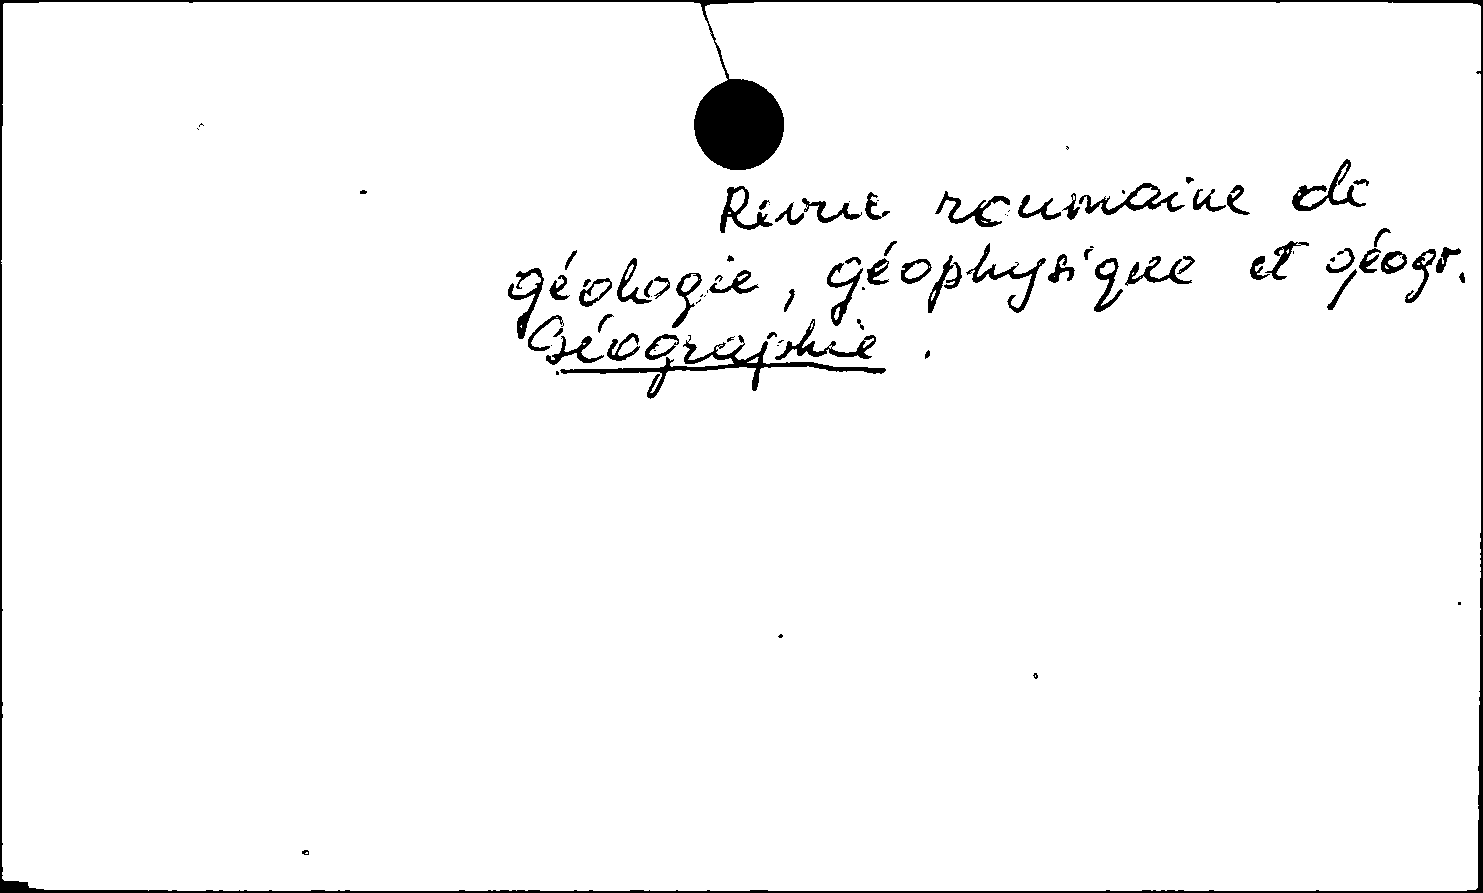 Revue roumaine de
géologie, géophysique et géogr.
Géographie.